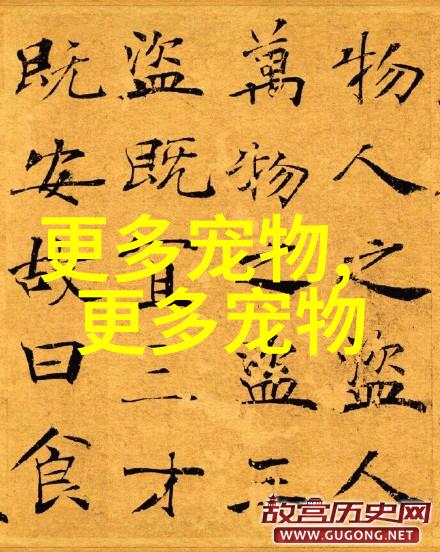 物人之盜人
萬物之盜三
盜既宜三才
既安故曰食
更多宠物,
更多宠物
故宫历史网
WWW.GUGONG.NET